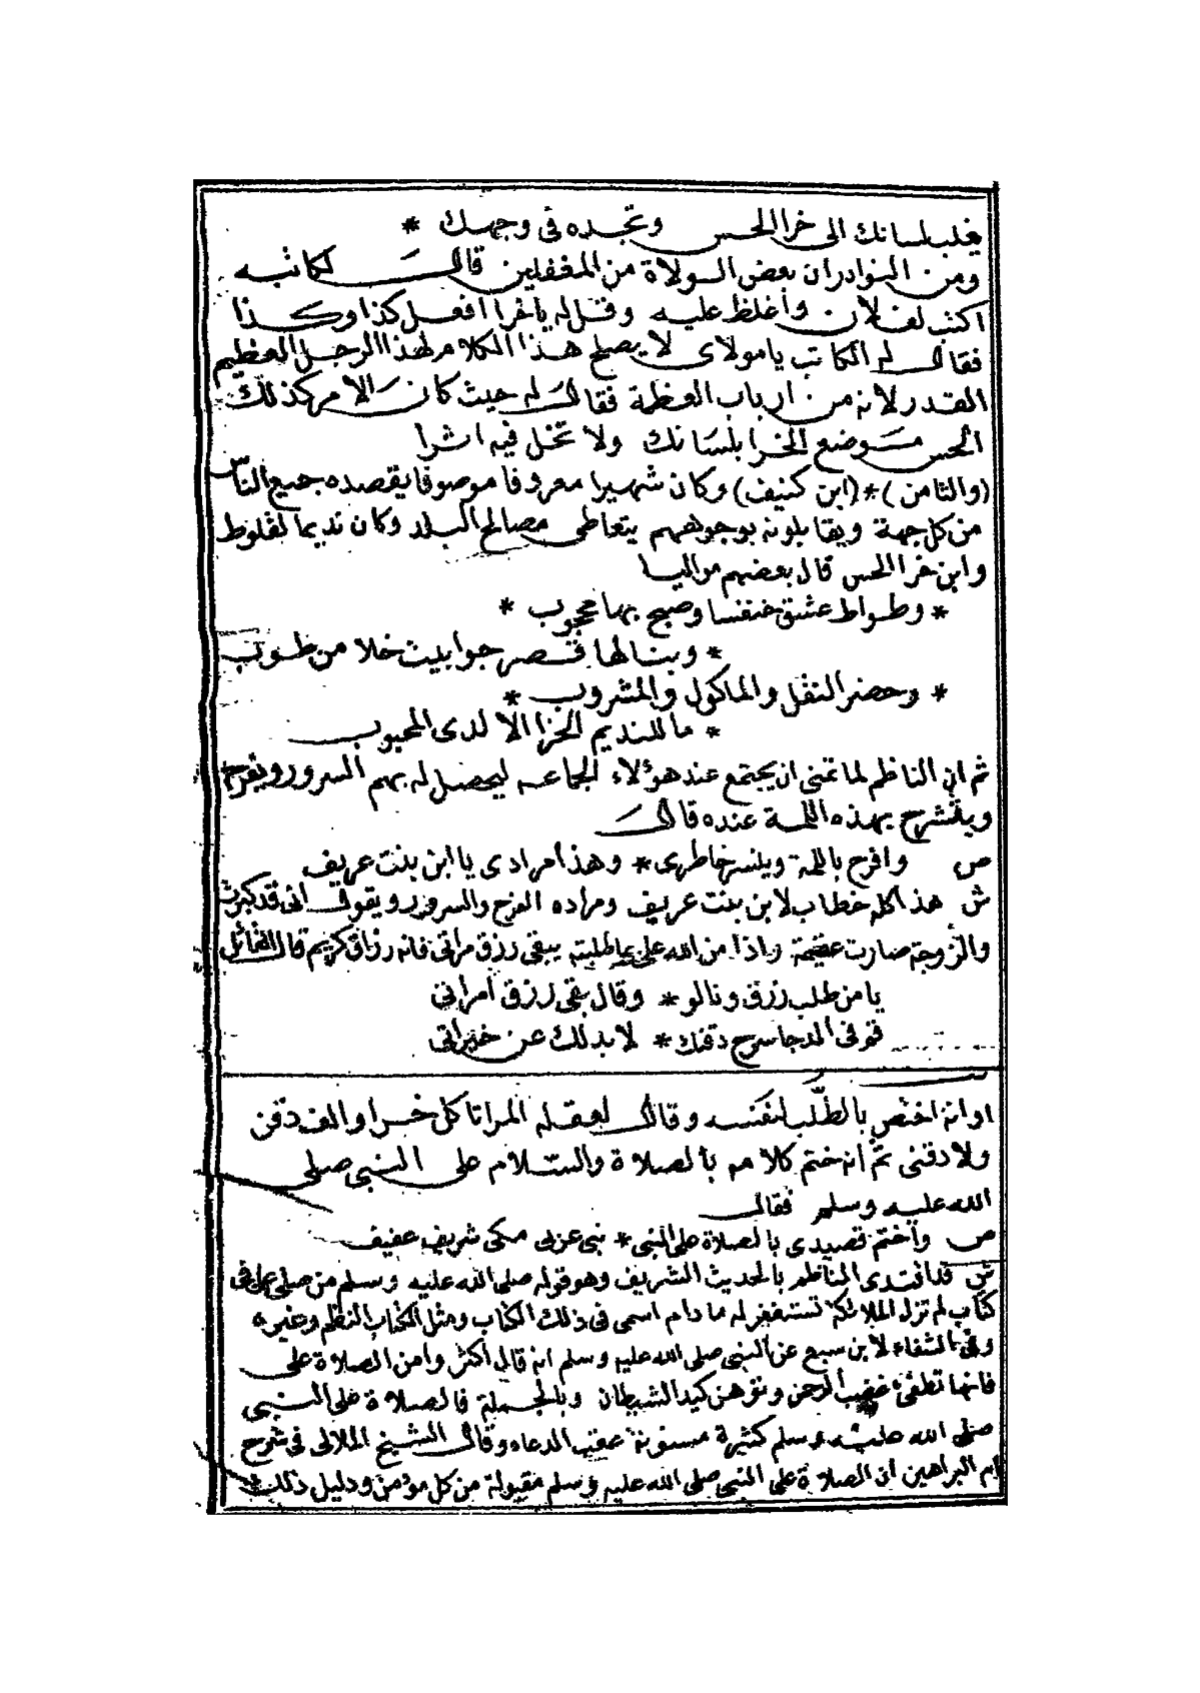 يغلب لسانك الى خرا الحس وتجده فى وجهك *
ومن النوادر ان بعض الولاة من المغفلين قال لكاتبه
اكتب لفلان واغلظ عليه وقل له يا خرا افعل كذا وكذا
فقال له الكاتب يا مولاى لا يصلح هذا الكلام لهذا الرجل العظيم
القدر لانه من ارباب العظمة فقال له حيث كان الامر كذلك
الحس موضع الخرا بلسانك ولا تخل فيه اثرا
(والثامن) * (ابن كنيف) وكان شهيرا معروفا موصوفا يقصده جميع الناس
من كل جهة ويقابلونه بوجوههم يتعاطى مصالح البلد وكان نديما لقلوط
وابن خرا الحس قال بعضهم مواليا
* وطواط عشق خنفسا وصبح بها محجوب *
* وبنا لها قصر جوا بيت خلا من طوب
* وحضر النقل والماكول والمشروب *
* ما للنديم الخرا الا لدى المحبوب
ثم ان الناظم لما تمنى ان يجتمع عند هؤلاء الجماعه ليحصل له بهم السرور ويفرح
وينشرح بهذه اللمة عنده قال
ص وافرح باللمة وينسر خاطرى * وهذا مرادى يا ابن بنت عريف
ش هذا كله خطاب لابن بنت عريف ومراده الفرح والسرور ويقول انى قد كبرت
والزوجة صارت عقيمة واذا من الله على بما طلبته يبقى رزق مراتى فانه رزاق كريم قال القائل
يا من طلب رزق ونالو * وقال بقى رزق امراتى
قم فى المدجا سرح دقنك * لا بد لك عن خيراتى
او انه اختص بالطلب لنفسه وقال لعقله المراتا كل خرا والف دقن
ولا دقنى ثم انه ختم كلامه بالصلاة والسلام على النبى صلى
الله عليه وسلم فقال
ص واختم قصيدى بالصلاة على النبى * نبى عربى مكى شريف عفيف
ش قد اقتدى الناظم بالحديث الشريف وهو قوله صلى الله عليه وسلم من صلى على فى
كتاب لم تزل الملائكة تستغفر له ما دام اسمى فى ذلك الكتاب ومثل الكتاب النظم وغيره
وفى الشفاء لابن سبع عن النبى صلى الله عليه وسلم انه قال اكثروا من الصلاة على
فانها تطفئ غضب الرحمن وتوهن كيد الشيطان وبالجملة فالصلاة على النبى
صلى الله عليه وسلم كثيرة مسنونة عقب الدعاء وقال الشيخ الملالى فى شرح
ام البراهين ان الصلاة على النبى صلى الله عليه وسلم مقبولة من كل مؤمن ودليل ذلك